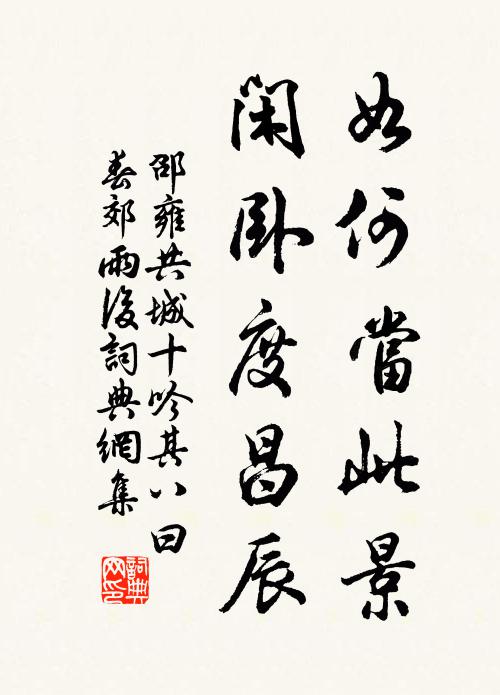 如何當此景
閑臥度昌辰
邵雍共城十吟其八曰
春郊雨後詞典網集
詞典网印